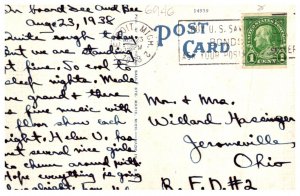 On board Dee and Bee
Aug 23, 1938
Quite rough today.
But we are standing
it fine. So cool to
sleep nights. Meals
are grand & there
is fine music with
a floor show each
night. Helen V. has
met several nice girls
to chum around with
Hope everything is going
6A46
MICH.
POST
CARD
74939
U.S. SA
BONDS
YOUR POST
1
Mr. & Mrs.
Willard Hassinger
Jeromesville
Ohio
R.F.D. #2